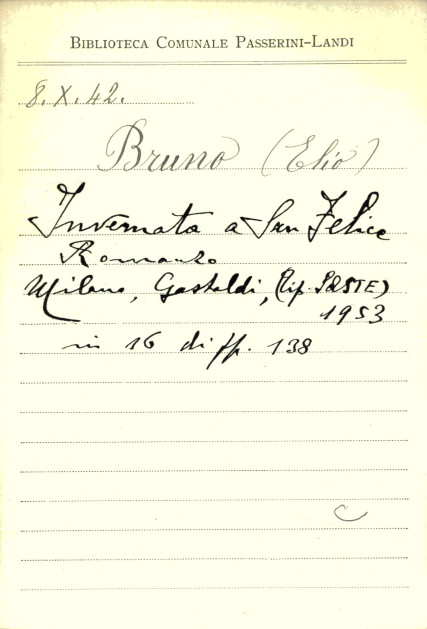 BIBLIOTECA COMUNALE PASSERINI-LANDI
8. X. 42.
Bruno (Elio)
Invernata a San Felice
Romanzo
Milano, Gastaldi, (tip.
1953
in 16 di pp. 138
C